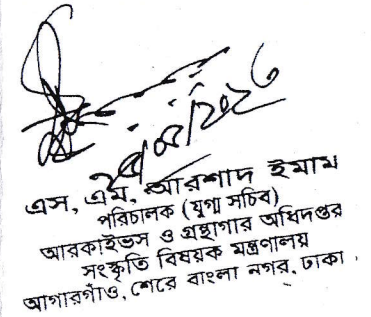 এস, এম, আরশাদ ইমাম
পরিচালক (যুগ্ম সচিব)
আরকাইভস ও গ্রন্থাগার অধিদপ্তর
সংস্কৃতি বিষয়ক মন্ত্রণালয়
আগারগাঁও, শেরে বাংলা নগর, ঢাকা।